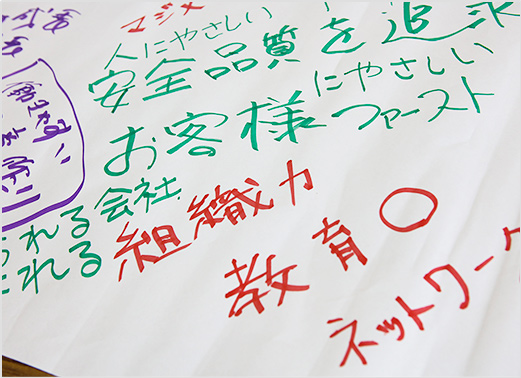 マジメ
人にやさしい
安全品質を追求
にやさしい
お客様ファースト
れる会社
れる
組織力
教育〇
ネットワーク